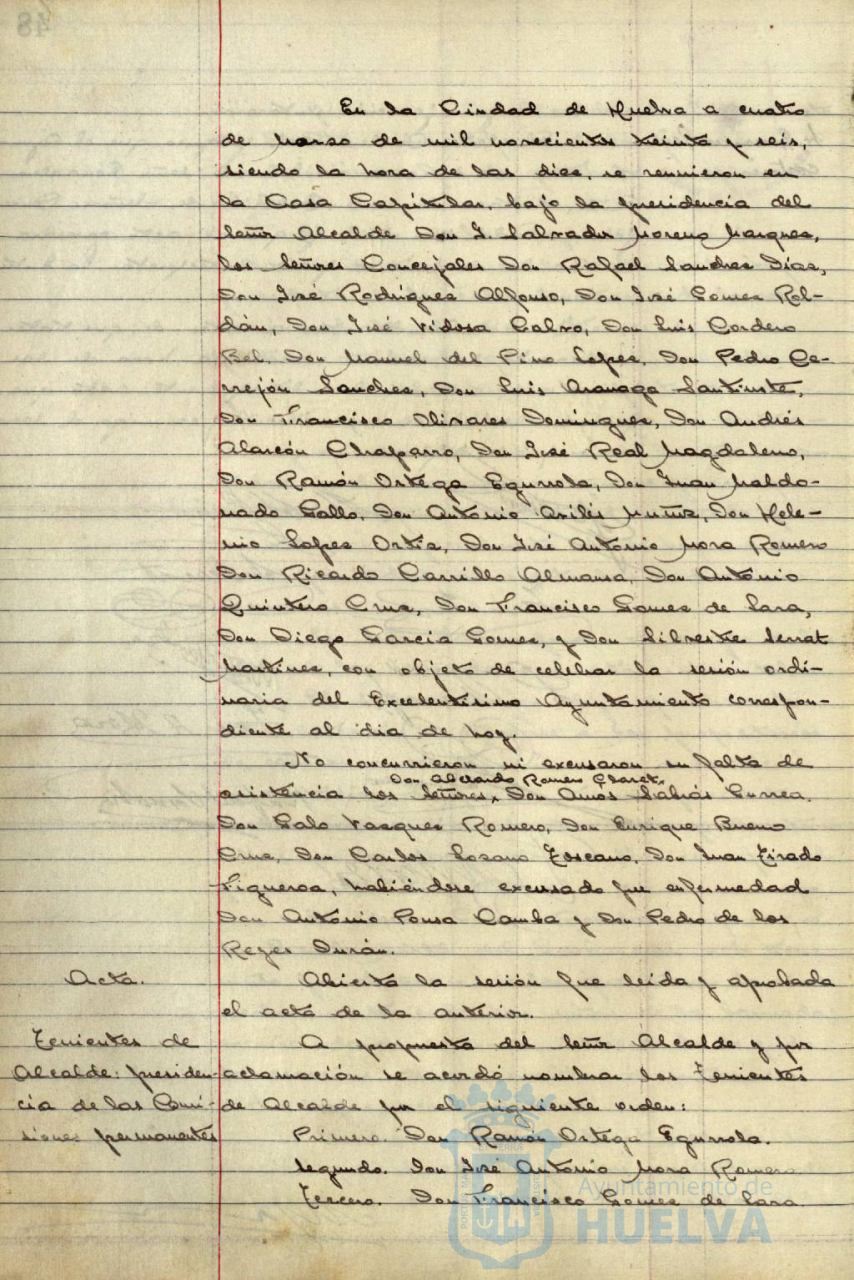 48
En la Ciudad de Huelva a cuatro
de Marzo de mil novecientos treinta y seis,
siendo la hora de las diez, se reunieron en
la Casa Capitular, bajo la presidencia del
Señor Alcalde Don J. Salvador Moreno Marquez,
los Señores Concejales Don Rafael Sanchez Díaz,
Don José Rodríguez Alfonso, Don José Gomez Rol-
dán, Don José Vidosa Calvo, Don Luis Cordero
Bel, Don Manuel del Pino Lopez, Don Pedro Ce-
rrejón Sanchez, Don Luis Aranaga Santiuste,
Don Francisco Olivares Domínguez, Don Andrés
Alarcón Chaparro, Don José Real Magdaleno,
Don Ramón Ortega Egurrola, Don Juan Maldo-
nado Gallo, Don Antonio Avilés Muñiz, Don Hele-
nio Lopez Ortiz, Don José Antonio Mora Romero
Don Ricardo Carrillo Almansa, Don Antonio
Quintero Cruz, Don Francisco Gomez de Lara,
Don Diego García Gomez, y Don Silvestre Serrat
Martínez, con objeto de celebrar la sesión ordi-
naria del Excelentísimo Ayuntamiento correspon-
diente al día de hoy.
No concurrieron ni excusaron su falta de
Don Romero Claret,
asistencia los Señores, Don Amós Sabrás Gurrea,
Don Galo Vazquez Romero, Don Enrique Bueno
Cruz, Don Carlos Lozano Toscano, Don Juan Tirado
Figueroa, habiéndose excusado por enfermedad
Don Antonio Ponsa Camba y Don Pedro de los
Reyes Durán.
Acta.
Abierta la sesión fue leída y aprobada
el acta de la anterior.
Tenientes de
Alcalde: presiden-
cia de las Comi-
siones permanentes
A propuesta del Señor Alcalde y por
aclamación se acordó nombrar los Tenientes
de Alcalde por el siguiente orden:
Primero. Don Ramón Ortega Egurrola.
Segundo. Don José Antonio Mora Romero
Tercero. Don Francisco Gomez de Lara.
Ayuntamiento de
HUELVA